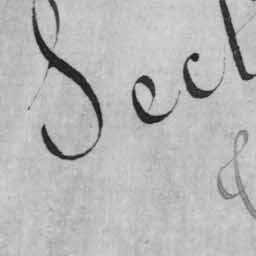 Sect
&